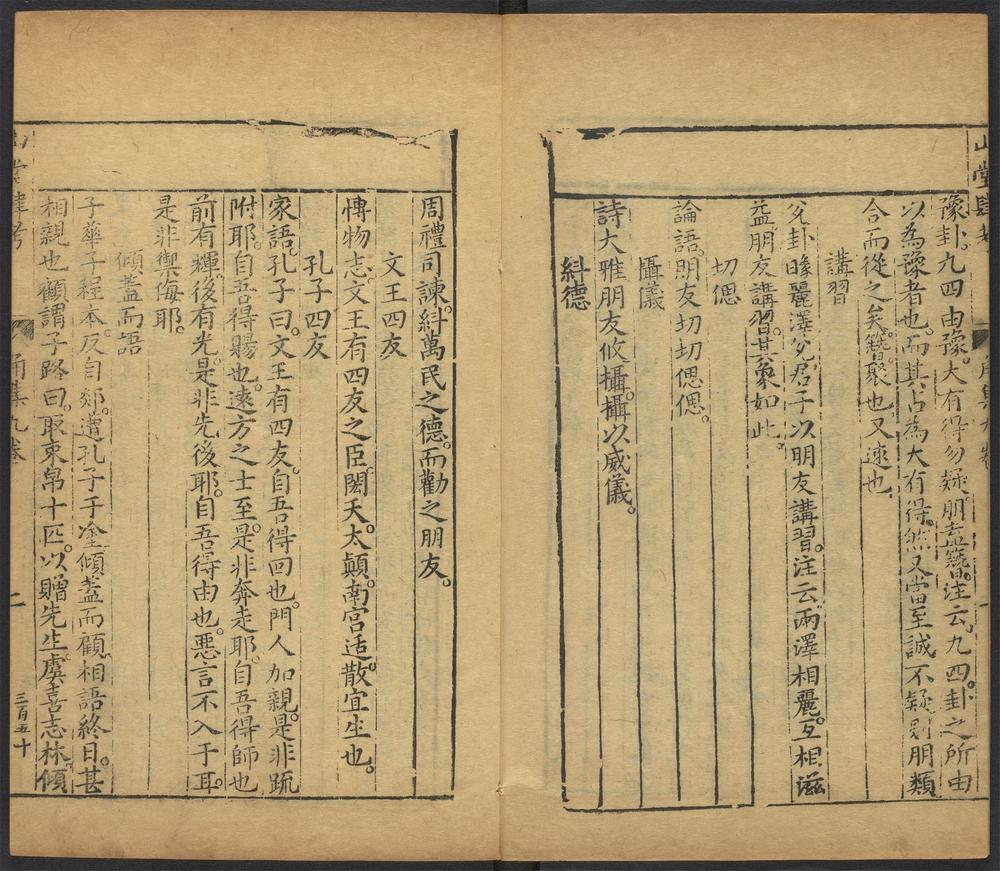 山堂肆考
角集九卷
一
豫卦。九四由豫。大有得勿疑。朋盍簪。注云。九四。卦之所由
以為豫者也。而其占為大有得。然又當至誠不疑。則朋類
合而從之矣。簪。聚也。又速也
講習
兊卦㬌麗澤兊。君子以朋友講習。注云兩澤相麗。互相滋
益。朋友講習。其象如此。
切偲
論語。朋友切切偲偲。
攝儀
詩大雅朋友攸攝。攝以威儀。
糾德
周禮司諫。糾萬民之德。而勸之朋友。
文王四友
博物志。文王有四友之臣。閎夭。太顛。南宮适。散宜生也。
孔子四友
家語。孔子曰。文王有四友。自吾得回也。門人加親。是非䟽
附耶。自吾得賜也。遠方之士至。是非奔走耶。自吾得師也
前有輝。後有光。是非先後耶。自吾得由也。惡言不入于耳。
是非禦侮耶。
傾蓋而語
子華子程本。反自郯。遭孔子于塗。傾蓋而顧。相語終日。甚
相親也。顧謂子路曰。取束帛十匹。以贈先生。虞喜志林。傾
山堂肆考
角集九卷
二
三百五十